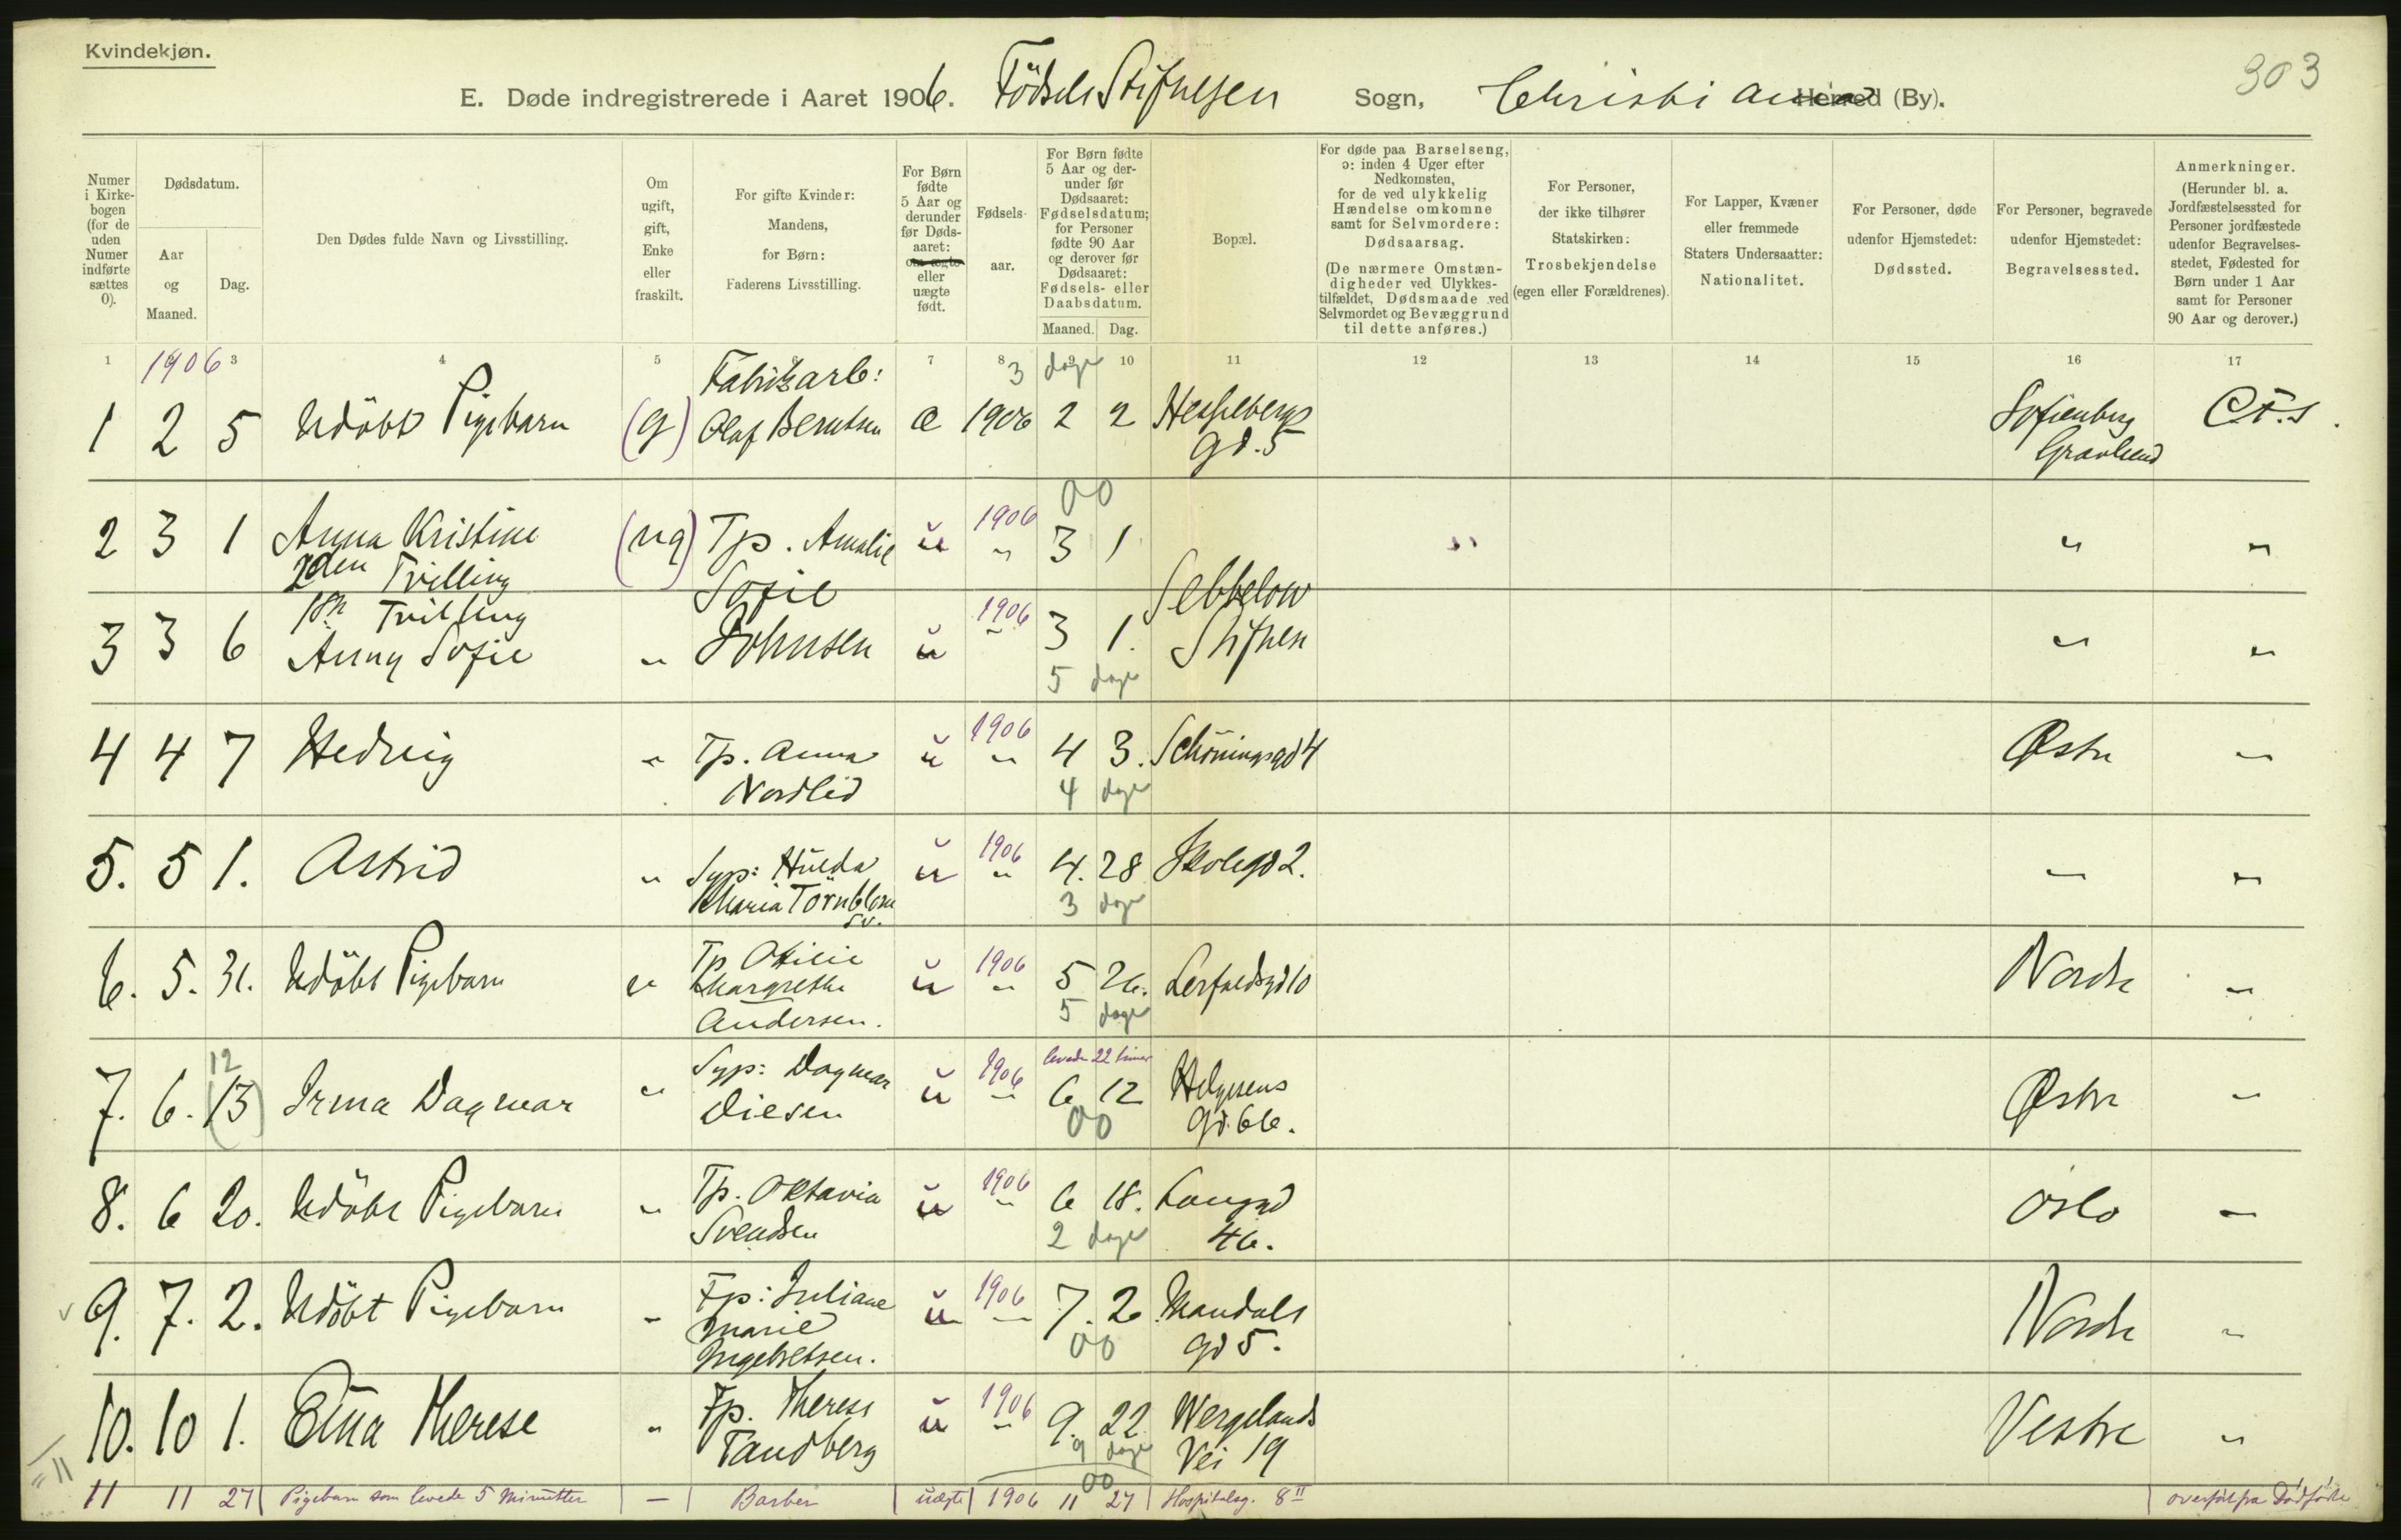 Kvindekjøn.
303
E. Døde indregistrerede i Aaret 1906. Födsels Stiftelsen Sogn, Christiania Herred (By).
Numer i Kirkebogen (for de uden Numer indførte sættes 0).
Dødsdatum.
Aar og Maaned.
Dag.
Den Dødes fulde Navn og Livsstilling.
Om ugift, gift, Enke eller fraskilt.
For gifte Kvinder: Mandens, for Børn: Faderens Livsstilling.
For Børn fødte 5 Aar og derunder før Dødsaaret: om ægte eller uægte født.
Fødselsaar.
For Børn fødte 5 Aar og derunder før Dødsaaret: Fødselsdatum; for Personer fødte 90 Aar og derover før Dødsaaret: Fødsels- eller Daabsdatum.
Maaned. Dag.
Bopæl.
For døde paa Barselseng, ɔ: inden 4 Uger efter Nedkomsten, for de ved ulykkelig Hændelse omkomne samt for Selvmordere: Dødsaarsag.
(De nærmere Omstændigheder ved Ulykkestilfældet, Dødsmaade ved Selvmordet og Bevæggrund til dette anføres.)
For Personer, der ikke tilhører Statskirken: Trosbekjendelse (egen eller Forældrenes).
For Lapper, Kvæner eller fremmede Staters Undersaatter: Nationalitet.
For Personer, døde udenfor Hjemstedet: Dødssted.
For Personer, begravede udenfor Hjemstedet: Begravelsessted.
Anmerkninger.
(Herunder bl. a. Jordfæstelsessted for Personer jordfæstede udenfor Begravelsesstedet, Fødested for Børn under 1 Aar samt for Personer 90 Aar og derover.)
1 2 3 4 5 6 7 8 9 10 11 12 13 14 15 16 17
1906
3 dage
1 2 5 Udöbt Pigebarn (g) Fabrikarb: Olaf Berntsen æ 1906 2 2 Hesselbergs gd. 5 Sofienberg Gravlund C.F.S.
00
2 3 1 Anna Kristine 2den Tvilling (ug) Tp. Amalie Sofie ŭ 1906 " 3 1 " " "
3 3 6 1ste Tvilling Anny Sofie " Johnsen ŭ 1906 " 3 1. Sebbelow Stiftelse " "
5 dage
4 4 7 Hedvig " Tp. Anna Nordlid ŭ 1906 " 4 3. Schöningsgd 4 Østre "
4 dage
5. 5 1. Astrid " Syp: Hulda Maria Törnblom Sv. ŭ 1906 " 4. 28 Skolegd 2. " "
3 dage
6. 5. 31. Udöbt Pigebarn " Tp Otilie Margrethe Andersen. ŭ 1906 " 5 26. Lerfaldsgd 10 Nordre "
5 dage
7. 6. (13) 12 Irma Dagmar " Syp: Dagmar Diesen ŭ 1906 " levede 22 timer 6 12 Helgesens gd. 66. Østre "
00
8. 6 20. Udöbt Pigebarn " Tp. Oktavia Svendsen ŭ 1906 " 6 18. Langgd 46. Oslo "
2 dage
9. 7. 2. Udöbt Pigebarn " Fp: Juliane Marie Ingebretsen. ŭ 1906 " 7. 2 Mandals gd 5. Nordre "
00
10. 10 1. Elna Therese " Fp. Therese Tandberg ŭ 1906 " 9. 22 Wergelands Vei 19 Vestre "
9 dage
00
11 11 27 Pigebarn som levede 5 Minutter — Barber uægte 1906 11 27 Hospitalsg. 8 II overført fra Dødfødte